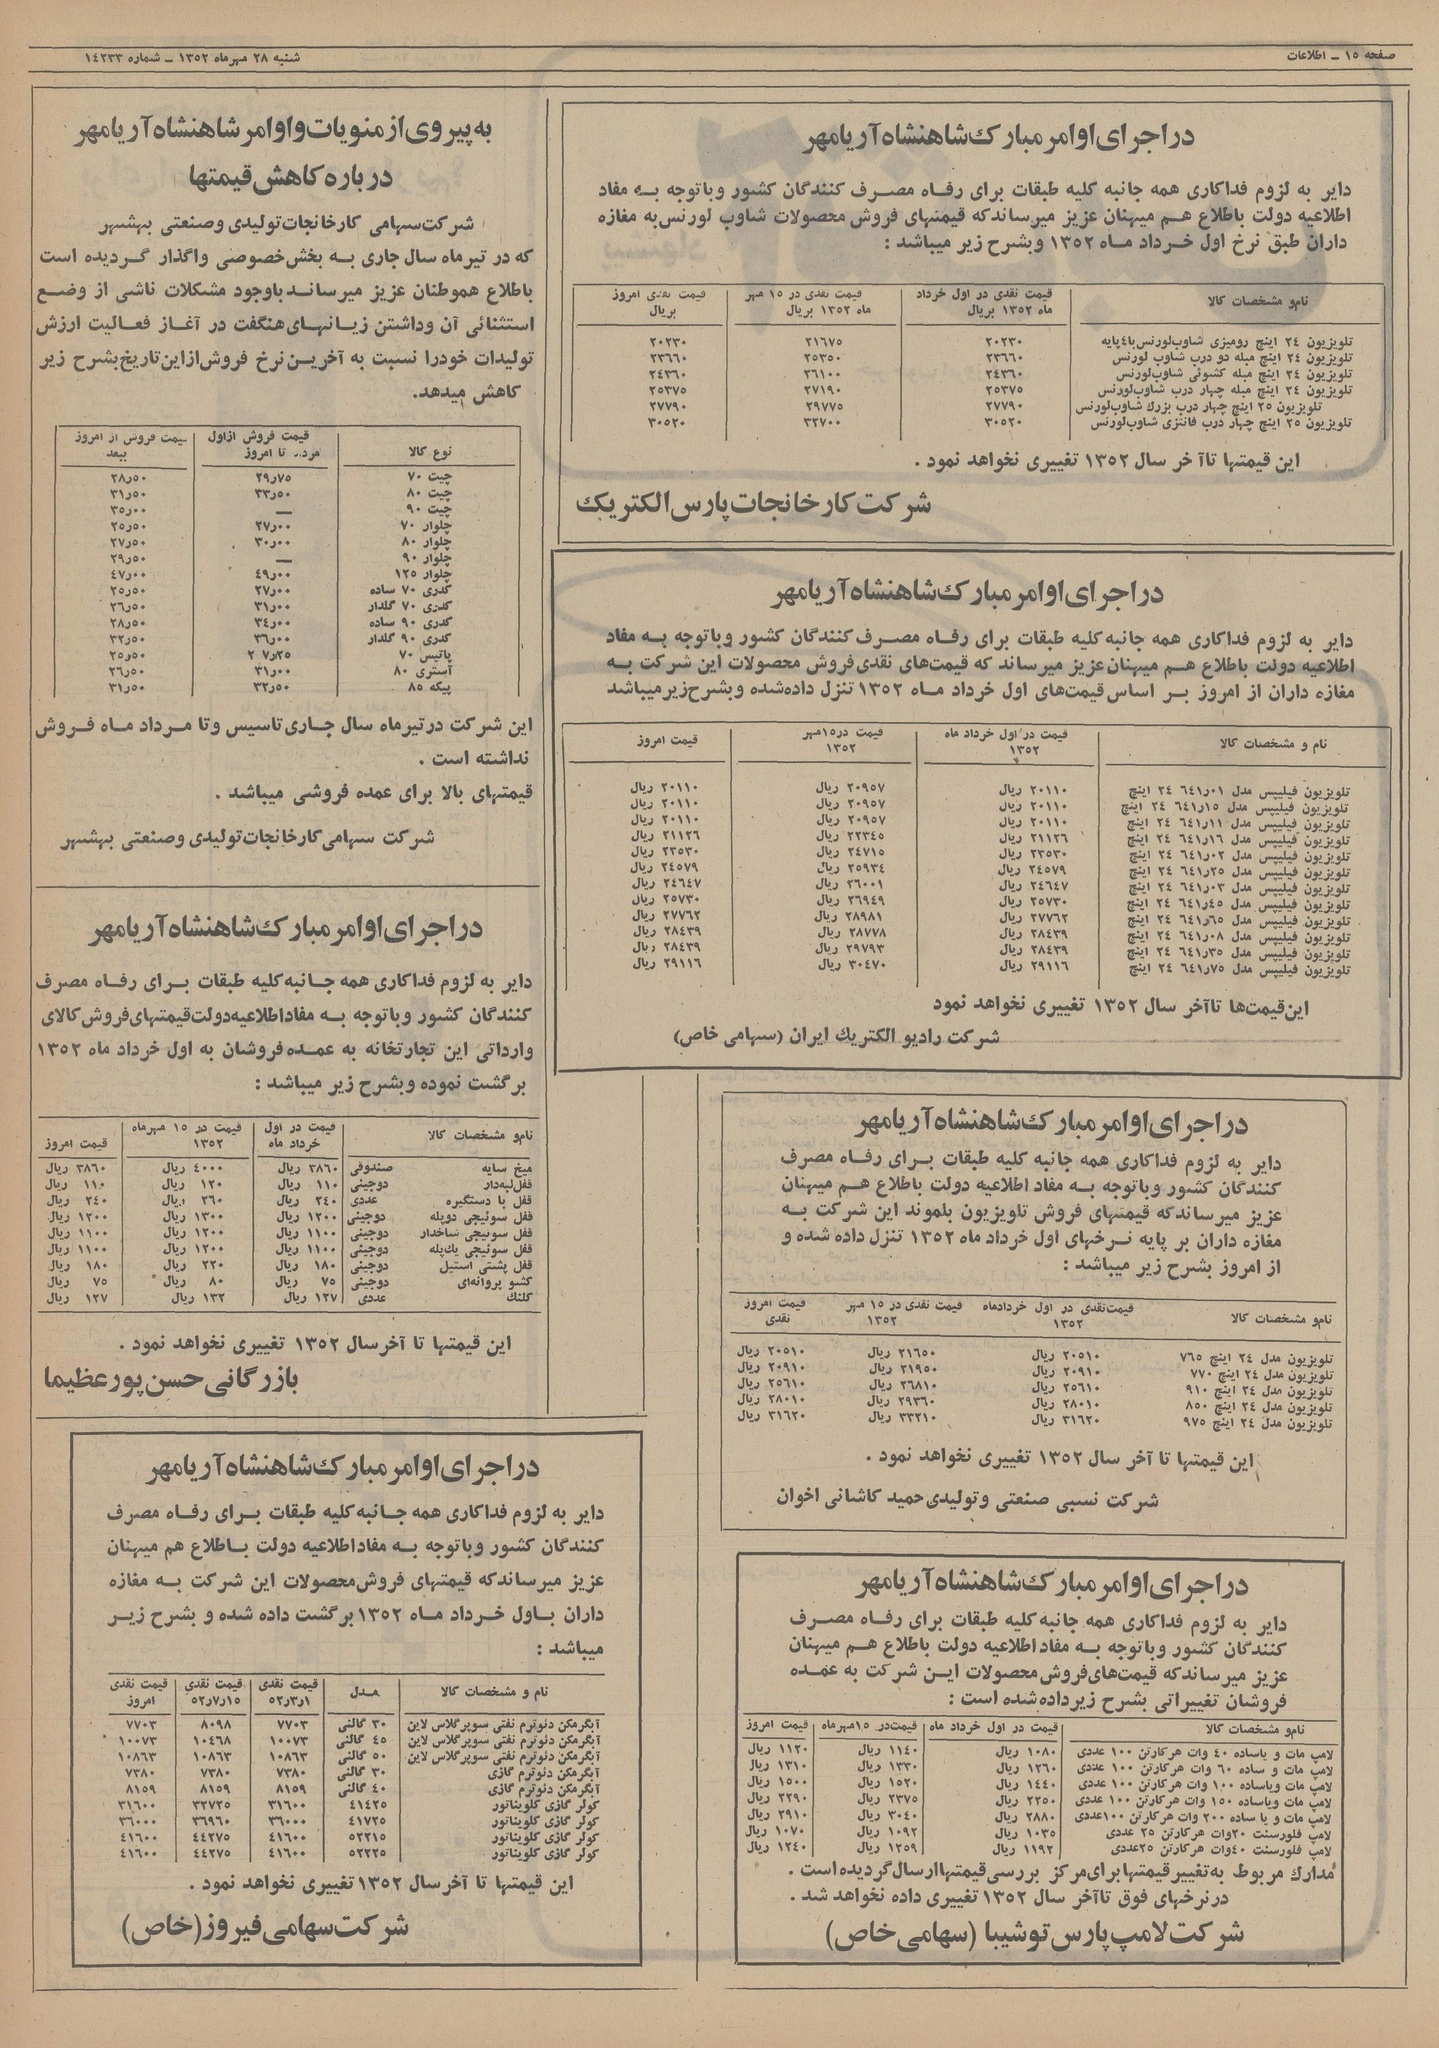 صفحه ۱۵ ــ اطلاعات
شنبه ۲۸ مهرماه ۱۳۵۲ ــ شماره ۱۴۲۳۳
در اجرای اوامر مبارک شاهنشاه آریامهر
دایر به لزوم فداکاری همه جانبه کلیه طبقات برای رفاه مصرف کنندگان کشور وباتوجه به مفاد
اطلاعیه دولت باطلاع هم میهنان عزیز میرساندکه قیمتهای فروش محصولات شاوب لورنس به مغازه
داران طبق نرخ اول خرداد ماه ۱۳۵۲ وبشرح زیر میباشد :
نام‌و مشخصات کالا | قیمت نقدی در اول خرداد ماه ۱۳۵۲ بریال | قیمت نقدی در ۱۵ مهر ماه ۱۳۵۲ بریال | قیمت نقدی امروز بریال
تلویزیون ۲۴ اینچ رومیزی شاوب‌لورنس با۴پایه ۲۰۲۳۰ ۲۱۶۷۵ ۲۰۲۳۰
تلویزیون ۲۴ اینچ مبله دو درب شاوب لورنس ۲۳۶۶۰ ۲۵۳۵۰ ۲۳۶۶۰
تلویزیون ۲۴ اینچ مبله کشوئی شاوب‌لورنس ۲۴۳۶۰ ۲۶۱۰۰ ۲۴۳۶۰
تلویزیون ۲۴ اینچ مبله چهار درب شاوب‌لورنس ۲۵۳۷۵ ۲۷۱۹۰ ۲۵۳۷۵
تلویزیون ۲۵ اینچ چهار درب بزرگ شاوب‌لورنس ۲۷۷۹۰ ۲۹۷۷۵ ۲۷۷۹۰
تلویزیون ۲۵ اینچ چهار درب فانتزی شاوب‌لورنس ۳۰۵۲۰ ۳۲۷۰۰ ۳۰۵۲۰
این قیمتها تاآخر سال ۱۳۵۲ تغییری نخواهد نمود .
شرکت کارخانجات پارس الکتریک
در اجرای اوامر مبارک شاهنشاه آریامهر
دایر به لزوم فداکاری همه جانبه کلیه طبقات برای رفاه مصرف کنندگان کشور وباتوجه به مفاد
اطلاعیه دولت باطلاع هم میهنان عزیز میرساند که قیمت‌های نقدی فروش محصولات این شرکت به
مغازه داران از امروز بر اساس قیمت‌های اول خرداد ماه ۱۳۵۲ تنزل داده‌شده وبشرح زیرمیباشد
نام و مشخصات کالا | قیمت در اول خرداد ماه ۱۳۵۲ | قیمت در۱۵مهر ۱۳۵۲ | قیمت امروز
تلویزیون فیلیپس مدل ۶۴۱ر۰۱ ۲۴ اینچ ۲۰۱۱۰ ریال ۲۰۹۵۷ ریال ۲۰۱۱۰ ریال
تلویزیون فیلیپس مدل ۶۴۱ر۱۵ ۲۴ اینچ ۲۰۱۱۰ ریال ۲۰۹۵۷ ریال ۲۰۱۱۰ ریال
تلویزیون فیلیپس مدل ۶۴۱ر۱۱ ۲۴ اینچ ۲۰۱۱۰ ریال ۲۰۹۵۷ ریال ۲۰۱۱۰ ریال
تلویزیون فیلیپس مدل ۶۴۱ر۱۶ ۲۴ اینچ ۲۱۱۲۶ ریال ۲۲۳۴۵ ریال ۲۱۱۲۶ ریال
تلویزیون فیلیپس مدل ۶۴۱ر۰۲ ۲۴ اینچ ۲۳۵۳۰ ریال ۲۴۷۱۵ ریال ۲۳۵۳۰ ریال
تلویزیون فیلیپس مدل ۶۴۱ر۲۵ ۲۴ اینچ ۲۴۵۷۹ ریال ۲۵۹۳۴ ریال ۲۴۵۷۹ ریال
تلویزیون فیلیپس مدل ۶۴۱ر۰۳ ۲۴ اینچ ۲۴۶۴۷ ریال ۲۶۰۰۱ ریال ۲۴۶۴۷ ریال
تلویزیون فیلیپس مدل ۶۴۱ر۴۵ ۲۴ اینچ ۲۵۷۳۰ ریال ۲۶۹۴۹ ریال ۲۵۷۳۰ ریال
تلویزیون فیلیپس مدل ۶۴۱ر۶۵ ۲۴ اینچ ۲۷۷۶۲ ریال ۲۸۹۸۱ ریال ۲۷۷۶۲ ریال
تلویزیون فیلیپس مدل ۶۴۱ر۰۸ ۲۴ اینچ ۲۸۴۳۹ ریال ۲۸۷۷۸ ریال ۲۸۴۳۹ ریال
تلویزیون فیلیپس مدل ۶۴۱ر۳۵ ۲۴ اینچ ۲۸۴۳۹ ریال ۲۹۷۹۳ ریال ۲۸۴۳۹ ریال
تلویزیون فیلیپس مدل ۶۴۱ر۷۵ ۲۴ اینچ ۲۹۱۱۶ ریال ۳۰۴۷۰ ریال ۲۹۱۱۶ ریال
این‌قیمت‌ها تاآخر سال ۱۳۵۲ تغییری نخواهد نمود
شرکت رادیو الکتریک ایران (سهامی خاص)
در اجرای اوامر مبارک شاهنشاه آریامهر
دایر به لزوم فداکاری همه جانبه کلیه طبقات برای رفاه مصرف
کنندگان کشور وباتوجه به مفاد اطلاعیه دولت باطلاع هم میهنان
عزیز میرساندکه قیمتهای فروش تلویزیون بلموند این شرکت به
مغازه داران بر پایه نرخهای اول خرداد ماه ۱۳۵۲ تنزل داده شده و
از امروز بشرح زیر میباشد :
نام‌و مشخصات کالا | قیمت‌نقدی در اول خردادماه ۱۳۵۲ | قیمت نقدی در ۱۵ مهر ۱۳۵۲ | قیمت امروز نقدی
تلویزیون مدل ۲۴ اینچ ۷۶۵ ۲۰۵۱۰ ریال ۲۱۶۵۰ ریال ۲۰۵۱۰ ریال
تلویزیون مدل ۲۴ اینچ ۷۷۰ ۲۰۹۱۰ ریال ۲۱۹۵۰ ریال ۲۰۹۱۰ ریال
تلویزیون مدل ۲۴ اینچ ۹۱۰ ۲۵۶۱۰ ریال ۲۶۸۱۰ ریال ۲۵۶۱۰ ریال
تلویزیون مدل ۲۴ اینچ ۸۵۰ ۲۸۰۱۰ ریال ۲۹۳۶۰ ریال ۲۸۰۱۰ ریال
تلویزیون مدل ۲۴ اینچ ۹۷۵ ۳۱۶۲۰ ریال ۳۳۲۱۰ ریال ۳۱۶۲۰ ریال
این قیمتها تا آخر سال ۱۳۵۲ تغییری نخواهد نمود .
شرکت نسبی صنعتی وتولیدی حمید کاشانی اخوان
در اجرای اوامر مبارک شاهنشاه آریامهر
دایر به لزوم فداکاری همه جانبه کلیه طبقات برای رفاه مصرف
کنندگان کشور وباتوجه به مفاد اطلاعیه دولت باطلاع هم میهنان
عزیز میرساندکه قیمت‌های فروش محصولات این شرکت به عمده
فروشان تغییراتی بشرح زیر داده شده است :
نام‌و مشخصات کالا | قیمت در اول خرداد ماه | قیمت‌در ۱۵مهرماه | قیمت امروز
لامپ مات و یاساده ۴۰ وات هرکارتن ۱۰۰ عددی ۱۰۸۰ ریال ۱۱۴۰ ریال ۱۱۲۰ ریال
لامپ مات و ساده ۶۰ وات هرکارتن ۱۰۰ عددی ۱۲۶۰ ریال ۱۳۳۰ ریال ۱۳۱۰ ریال
لامپ مات ویاساده ۱۰۰ وات هرکارتن ۱۰۰ عددی ۱۴۴۰ ریال ۱۵۲۰ ریال ۱۵۰۰ ریال
لامپ مات ویاساده ۱۵۰ وات هرکارتن ۱۰۰ عددی ۲۲۵۰ ریال ۲۳۷۵ ریال ۲۲۹۰ ریال
لامپ مات و یا ساده ۲۰۰ وات هرکارتن ۱۰۰عددی ۲۸۸۰ ریال ۳۰۴۰ ریال ۲۹۱۰ ریال
لامپ فلورسنت ۲۰وات هرکارتن ۲۵ عددی ۱۰۳۵ ریال ۱۰۹۲ ریال ۱۰۷۰ ریال
لامپ فلورسنت ۴۰وات هرکارتن ۲۵عددی ۱۱۹۲ ریال ۱۲۵۹ ریال ۱۲۴۰ ریال
مدارک مربوط به‌تغییر قیمتها برای مرکز بررسی قیمتها ارسال گردیده است .
درنرخهای فوق تاآخر سال ۱۳۵۲ تغییری داده نخواهد شد .
شرکت لامپ پارس توشیبا (سهامی خاص)
به پیروی از منویات و اوامر شاهنشاه آریامهر
درباره کاهش قیمتها
شرکت سهامی کارخانجات تولیدی وصنعتی بهشهر
که در تیرماه سال جاری به بخش خصوصی واگذار گردیده است
باطلاع هموطنان عزیز میرساند باوجود مشکلات ناشی از وضع
استثنائی آن وداشتن زیانهای هنگفت در آغاز فعالیت ارزش
تولیدات خودرا نسبت به آخرین نرخ فروش ازاین تاریخ بشرح زیر
کاهش میدهد.
نوع کالا | قیمت فروش ازاول مرد.. تا امروز | قیمت فروش از امروز ببعد
چیت ۷۰ ۲۹ر۷۵ ۲۸ر۵۰
چیت ۸۰ ۳۳ر۵۰ ۳۱ر۵۰
چیت ۹۰ — ۳۵ر۰۰
چلوار ۷۰ ۲۷ر۰۰ ۲۵ر۵۰
چلوار ۸۰ ۳۰ر۰۰ ۲۷ر۵۰
چلوار ۹۰ — ۲۹ر۵۰
چلوار ۱۲۵ ۴۹ر۰۰ ۴۷ر۰۰
کدری ۷۰ ساده ۲۷ر۰۰ ۲۵ر۵۰
کدری ۷۰ گلدار ۳۱ر۰۰ ۲۶ر۵۰
کدری ۹۰ ساده ۳۴ر۰۰ ۲۸ر۵۰
کدری ۹۰ گلدار ۳۶ر۰۰ ۳۲ر۵۰
پاتیس ۷۰ ۲۷ر۲۵ ۲۵ر۵۰
آستری ۸۰ ۳۱ر۰۰ ۲۶ر۵۰
پیکه ۸۵ ۳۲ر۵۰ ۳۱ر۵۰
این شرکت درتیرماه سال جاری تاسیس وتا مرداد ماه فروش
نداشته است .
قیمتهای بالا برای عمده فروشی میباشد .
شرکت سهامی کارخانجات تولیدی وصنعتی بهشهر
در اجرای اوامر مبارک شاهنشاه آریامهر
دایر به لزوم فداکاری همه جانبه کلیه طبقات برای رفاه مصرف
کنندگان کشور وباتوجه به مفاداطلاعیه دولت قیمتهای فروش کالای
وارداتی این تجارتخانه به عمده فروشان به اول خرداد ماه ۱۳۵۲
برگشت نموده وبشرح زیر میباشد :
نام‌و مشخصات کالا | قیمت در اول خرداد ماه | قیمت در ۱۵ مهرماه ۱۳۵۲ | قیمت امروز
میخ سایه صندوقی ۳۸۶۰ ریال ۴۰۰۰ ریال ۳۸۶۰ ریال
قفل‌لبه‌دار دوجینی ۱۱۰ ریال ۱۲۰ ریال ۱۱۰ ریال
قفل با دستگیره عددی ۲۴۰ ریال ۲۶۰ ریال ۲۴۰ ریال
قفل سوئیچی دوپله دوجینی ۱۲۰۰ ریال ۱۳۰۰ ریال ۱۲۰۰ ریال
قفل سوئیچی شاخدار دوجینی ۱۱۰۰ ریال ۱۲۰۰ ریال ۱۱۰۰ ریال
قفل سوئیچی یک‌پله دوجینی ۱۱۰۰ ریال ۱۲۰۰ ریال ۱۱۰۰ ریال
قفل پشتی استیل دوجینی ۱۸۰ ریال ۲۲۰ ریال ۱۸۰ ریال
کشو پروانه‌ای دوجینی ۷۵ ریال ۸۰ ریال ۷۵ ریال
کلنگ عددی ۱۲۷ ریال ۱۳۲ ریال ۱۲۷ ریال
این قیمتها تا آخرسال ۱۳۵۲ تغییری نخواهد نمود .
بازرگانی حسن پور عظیما
در اجرای اوامر مبارک شاهنشاه آریامهر
دایر به لزوم فداکاری همه جانبه کلیه طبقات برای رفاه مصرف
کنندگان کشور وباتوجه به مفاداطلاعیه دولت باطلاع هم میهنان
عزیز میرساندکه قیمتهای فروش محصولات این شرکت به مغازه
داران باول خرداد ماه ۱۳۵۲ برگشت داده شده و بشرح زیر
میباشد :
نام و مشخصات کالا | مدل | قیمت نقدی ۱ر۳ر۵۲ | قیمت نقدی ۱۵ر۷ر۵۲ | قیمت نقدی امروز
آبگرمکن دئوترم نفتی سوپرگلاس لاین ۳۰ گالنی ۷۷۰۳ ۸۰۹۸ ۷۷۰۳
آبگرمکن دئوترم نفتی سوپرگلاس لاین ۴۵ گالنی ۱۰۰۷۳ ۱۰۴۶۸ ۱۰۰۷۳
آبگرمکن دئوترم نفتی سوپرگلاس لاین ۵۰ گالنی ۱۰۸۶۳ ۱۰۸۶۳ ۱۰۸۶۳
آبگرمکن دئوترم گازی ۳۰ گالنی ۷۳۸۰ ۷۳۸۰ ۷۳۸۰
آبگرمکن دئوترم گازی ۴۰ گالنی ۸۱۵۹ ۸۱۵۹ ۸۱۵۹
کولر گازی کلویناتور ۴۱۴۲۵ ۳۱۶۰۰ ۳۲۷۲۵ ۳۱۶۰۰
کولر گازی کلویناتور ۴۱۷۲۵ ۳۶۰۰۰ ۳۶۹۶۰ ۳۶۰۰۰
کولر گازی کلویناتور ۵۲۲۱۵ ۴۱۶۰۰ ۴۴۲۷۵ ۴۱۶۰۰
کولر گازی کلویناتور ۵۲۲۲۵ ۴۱۶۰۰ ۴۴۲۷۵ ۴۱۶۰۰
این قیمتها تا آخرسال ۱۳۵۲ تغییری نخواهد نمود .
شرکت سهامی فیروز (خاص)